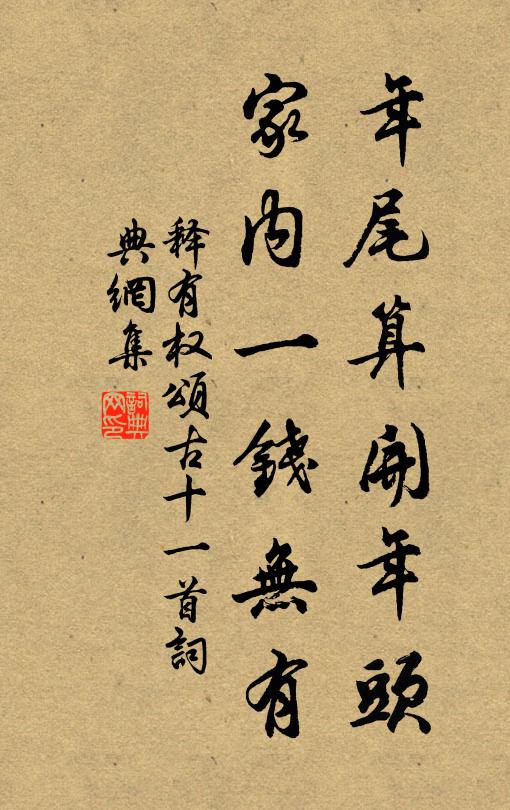 年尾算開年頭
家内一錢無有
釋有权頌古十一首詞
典網集
詞典网印